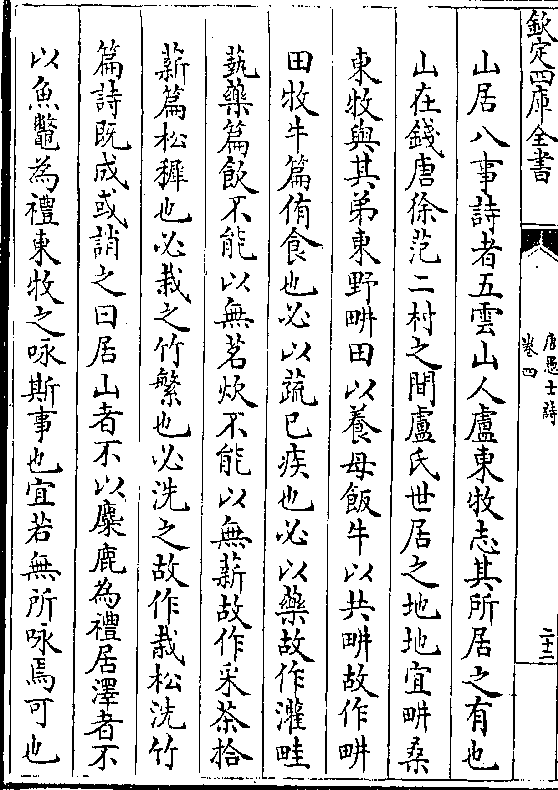 欽定四庫全書
唐愚士詩
卷四
二十二
山居八事詩者五雲山人盧東牧志其所居之有也
山在錢唐徐范二村之間盧氏世居之地地宜畊桑
東牧與其弟東野畊田以養母飯牛以共畊故作畊
田牧牛篇侑食也必以蔬已疾也必以藥故作灌畦
蓺藥篇飲不能以無茗炊不能以無薪故作采茶拾
薪篇松穉也必栽之竹繁也必洗之故作栽松洗竹
篇詩既成或誚之曰居山者不以麋鹿為禮居澤者不
以魚鼈為禮東牧之咏斯事也宜若無所咏焉可也